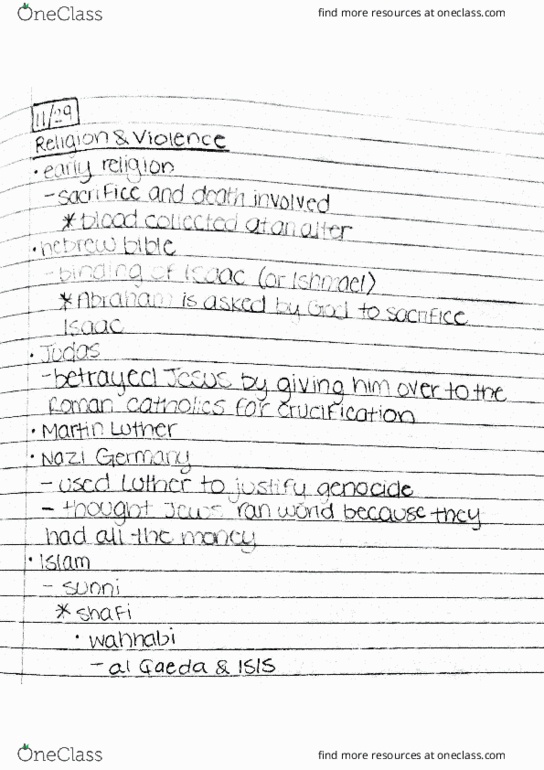 OneClass find more resources at oneclass.com
11/29
Religion & Violence
• early religion
- sacrifice and death involved
* blood collected at an alter
• hebrew bible
- binding of Isaac (or Ishmael)
* Abraham is asked by God to sacrifice
Isaac
• Judas
- betrayed Jesus by giving him over to the
Roman catholics for crucification
• Martin Luther
• Nazi Germany
- used Luther to justify genocide
- thought Jews ran world because they
had all the money
• Islam
- sunni
* shafi
• wahhabi
- al Qaeda & ISIS
OneClass find more resources at oneclass.com